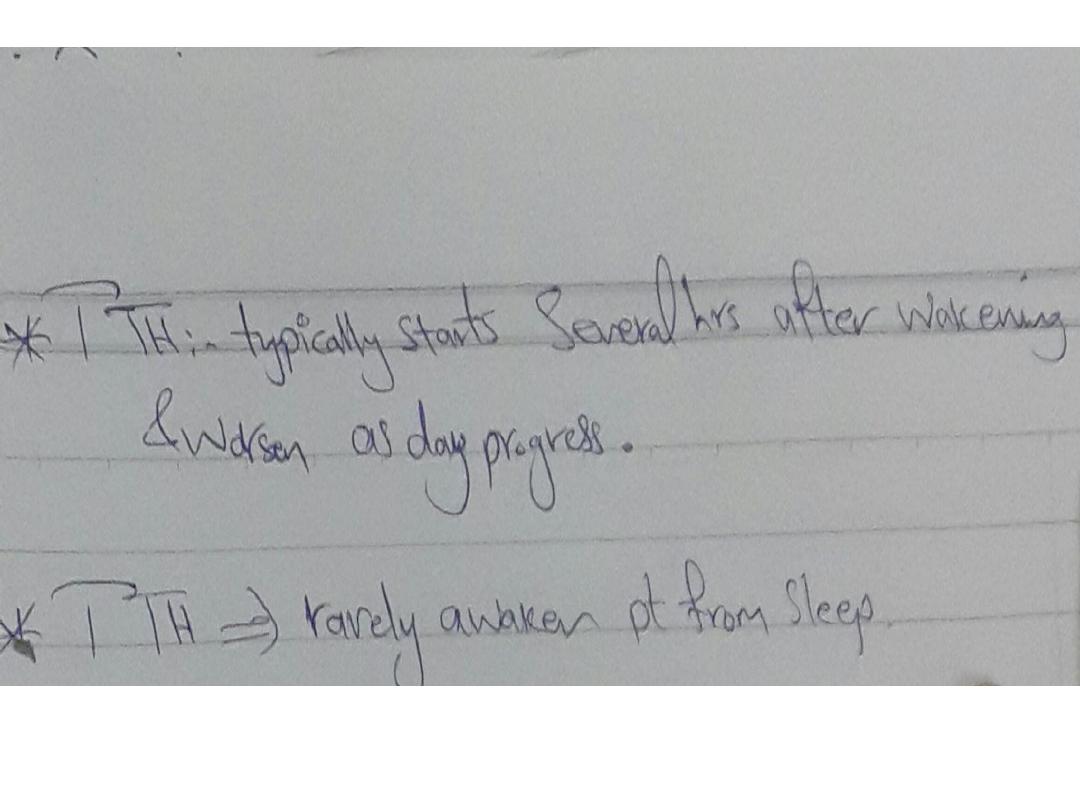 * TTH:- typically starts several hrs after wakening
& worsen as day progress.
* TTH ⇒ rarely awaken pt from sleep.